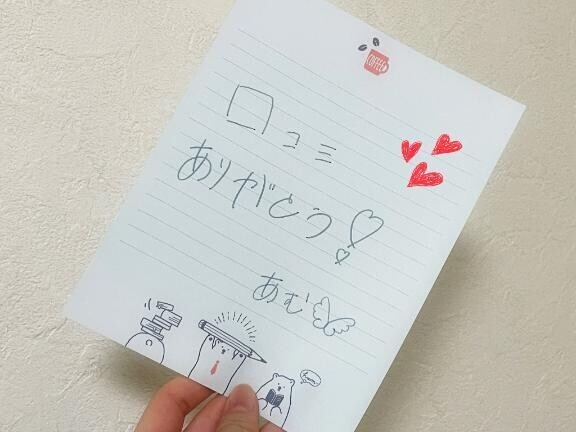 COFFEE
口コミ
ありがとう!
あむ